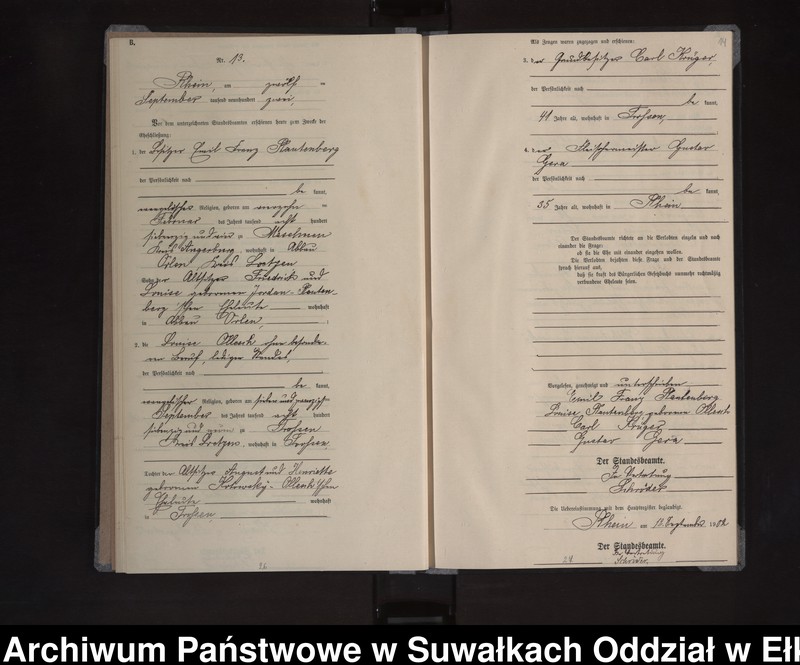 8.
Nr. 13.
Rhein, am zwölf
September tausend neunhundert zwei
Vor dem unterzeichneten Standesbeamten erschienen heute zum Zwecke der
Eheschließung:
1. der Besitzer Emil Franz Plautenberg
der Persönlichkeit nach
be kannt,
evangelischer Religion, geboren am vierzehn
Februar des Jahres tausend acht hundert
siebenzig und vier zu
Kreis Angerburg, wohnhaft in Abbau
Orlen, Kreis Loetzen
Altsitzer Friedrich und
Louise geborenen Jordan-Plauten-
berg'schen Eheleute wohnhaft
in Abbau Orlen,
2. die Louise Olleck ohne besonde-
ren Beruf, ledigen Standes,
der Persönlichkeit nach
be kannt,
evangelischer Religion, geboren am sieben und zwanzig
September des Jahres tausend acht hundert
siebenzig und neun zu Trossen
Kreis Loetzen, wohnhaft in Trossen
Tochter der Altsitzer August und Henriette
geborenen Olleck'schen
Eheleute wohnhaft
in Trossen
Als Zeugen waren zugezogen und erschienen:
3. der Grundbesitzer Carl Krüger,
der Persönlichkeit nach
be kannt,
41 Jahre alt, wohnhaft in Trossen,
4. der Fleischermeister Gustav
Gera
der Persönlichkeit nach
be kannt,
35 Jahre alt, wohnhaft in Rhein
Der Standesbeamte richtete an die Verlobten einzeln und nach
einander die Frage:
ob sie die Ehe mit einander eingehen wollen.
Die Verlobten bejahten diese Frage und der Standesbeamte
sprach hierauf aus,
daß sie kraft des Bürgerlichen Gesetzbuchs nunmehr rechtmäßig
verbundene Eheleute seien.
Vorgelesen, genehmigt und unterschrieben
Emil Franz Plautenberg
Louise Plautenberg geborene Olleck
Carl Krüger
Gustav Gera
Der Standesbeamte.
In Vertretung
Schröder
Die Uebereinstimmung mit dem Hauptregister beglaubigt.
Rhein am 12. September 1902
Der Standesbeamte.
In Vertretung
Schröder.
Archiwum Państwowe w Suwałkach Oddział w Ełk